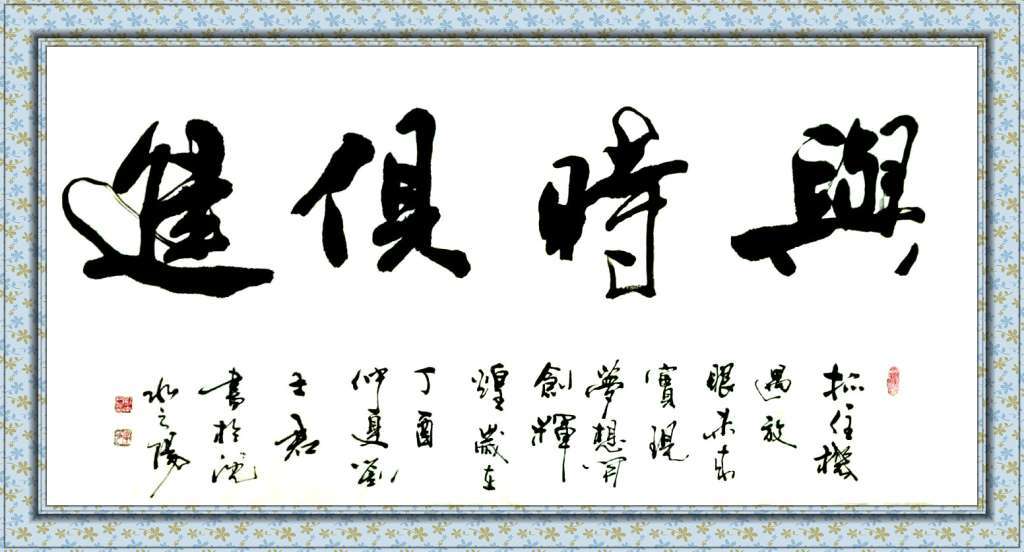 與時俱進
抓住機
遇放
眼未來
實現
夢想開
創輝
煌歲在
丁酉
仲夏劉
士君
書於沈
水之陽